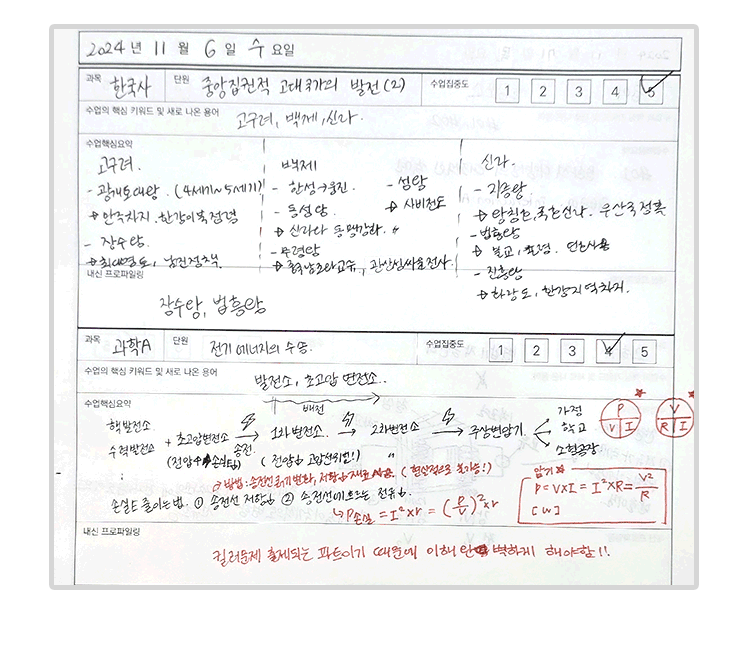 2024 년 11 월 6 일 수 요일
과목 한국사 단원 중앙집권적 고대국가의 발전(2) 수업집중도 1 2 3 4 5
수업의 핵심 키워드 및 새로 나온 용어
고구려, 백제, 신라.
수업핵심요약
고구려.
- 광개토대왕. (4세기~5세기)
→ 만주차지, 한강이북점령
- 장수왕
→ 최대영토, 남진정책.
백제
- 한성→웅진
- 동성왕
→ 신라와 동맹강화.
- 무령왕
→ 중국남조와교류,
- 성왕
→ 사비천도
관산성싸움전사.
신라.
- 지증왕
→ 왕칭호, 국호신라. 우산국정복
- 법흥왕
→ 불교, 율령. 연호사용
- 진흥왕
→ 화랑도, 한강지역차지.
내신 프로파일링
장수왕, 법흥왕
과목 과학A 단원 전기에너지의 수송. 수업집중도 1 2 3 4 5
수업의 핵심 키워드 및 새로 나온 용어
발전소, 초고압 변전소..
수업핵심요약
배전
핵발전소
수력발전소 + 초고압변전소 → 송전 1차변전소. → 2차변전소 → 주상변압기
가정
학교
소형공장
P V I
V R I
(전압↑ 손실↓) (전압↓ 고압선위험!) "
손실E 줄이는법. ① 송전선 저항↓ ② 송전선에흐르는 전류↓
↳ P손실 = I²×r = (P/V)²×r
암기☆
P = V×I = I²×R = V²/R
[W]
내신 프로파일링
킬러문제 출제되는 파트이기 때문에 이해 완벽하게 해야함!!